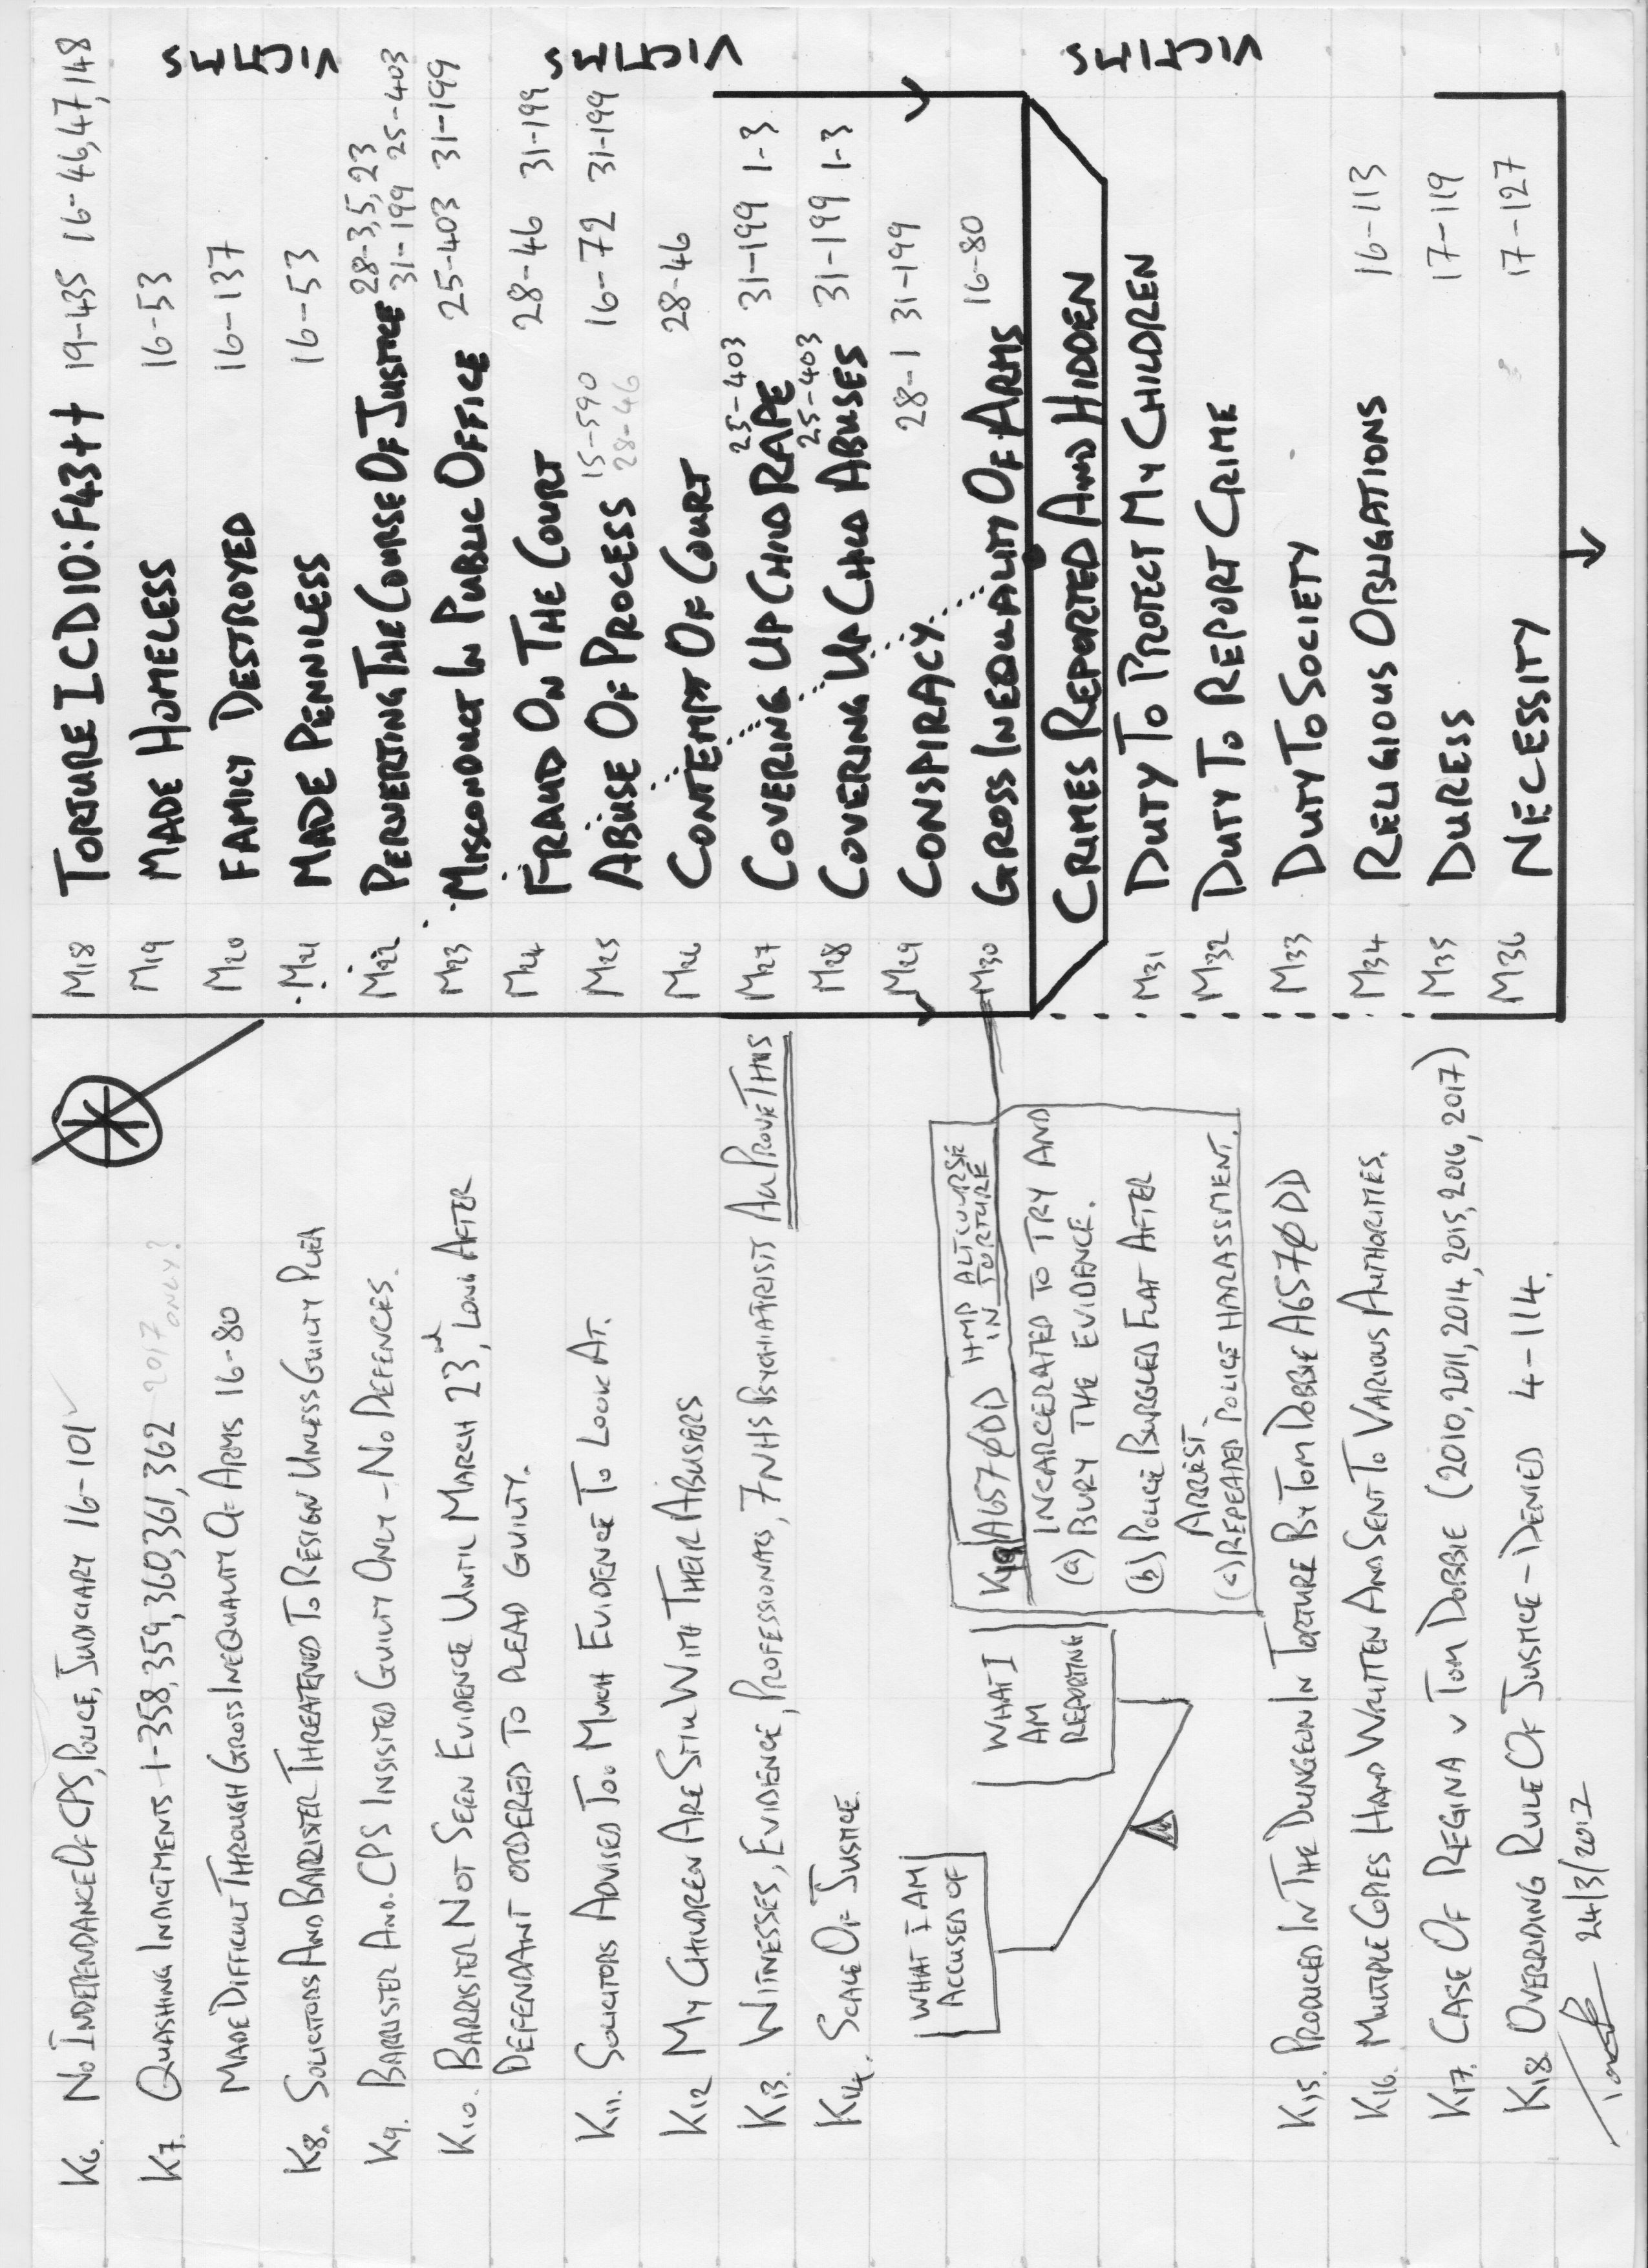 K6. No INDEPENDANCE OF CPS, POLICE, JUDICIARY 16-101
K7. QUASHING INDICTMENTS 1-358, 359, 360, 361, 362 2017 ONLY?
MADE DIFFICULT THROUGH GROSS INEQUALITY OF ARMS 16-80
K8. SOLICITORS AND BARRISTER THREATENED TO RESIGN UNLESS GUILTY PLEA
K9. BARRISTER AND CPS INSISTED GUILTY ONLY - NO DEFENCES.
K10. BARRISTER NOT SEEN EVIDENCE UNTIL MARCH 23rd, LONG AFTER
DEFENDANT ORDERED TO PLEAD GUILTY.
K11. SOLICITORS ADVISED TOO MUCH EVIDENCE TO LOOK AT.
K12 MY CHILDREN ARE STILL WITH THEIR ABUSERS
K13. WITNESSES, EVIDENCE, PROFESSIONALS, 7 NHS PSYCHIATRISTS ALL PROVE THIS
K14. SCALE OF JUSTICE.
WHAT I AM
ACCUSED OF
WHAT I
AM
REPORTING
K19 A6570DD HMP ALTCOURSE
IN TORTURE
INCARCERATED TO TRY AND
(a) BURY THE EVIDENCE.
(b) POLICE BURGLED FLAT AFTER
ARREST.
(c) REPEATED POLICE HARASSMENT.
K15. PRODUCED IN THE DUNGEON IN TORTURE BY TOM DOBBIE A6570DD
K16. MULTIPLE COPIES HAND WRITTEN AND SENT TO VARIOUS AUTHORITIES.
K17. CASE OF REGINA v TOM DOBBIE (2010, 2011, 2014, 2015, 2016, 2017)
K18. OVERRIDING RULE OF JUSTICE - DENIED 4-114.
24/3/2017
M18 TORTURE ICD10:F43++ 19-435 16-46,47,148
M19 MADE HOMELESS 16-53
M20 FAMILY DESTROYED 16-137
M21 MADE PENNILESS 16-53
VICTIMS
M22 PERVERTING THE COURSE OF JUSTICE 28-3,5,23
31-199 25-403
M23 MISCONDUCT IN PUBLIC OFFICE 25-403 31-199
M24 FRAUD ON THE COURT 28-46 31-199
M25 ABUSE OF PROCESS 15-590 28-46 16-72 31-199
M26 CONTEMPT OF COURT 28-46
VICTIMS
M27 COVERING UP CHILD RAPE 25-403 31-199 1-3
M28 COVERING UP CHILD ABUSES 25-403 31-199 1-3
M29 CONSPIRACY 28-1 31-199
M30 GROSS INEQUALITY OF ARMS 16-80
CRIMES REPORTED AND HIDDEN
M31 DUTY TO PROTECT MY CHILDREN
M32 DUTY TO REPORT CRIME
M33 DUTY TO SOCIETY
VICTIMS
M34 RELIGIOUS OBLIGATIONS 16-113
M35 DURESS 17-119
M36 NECESSITY 17-127